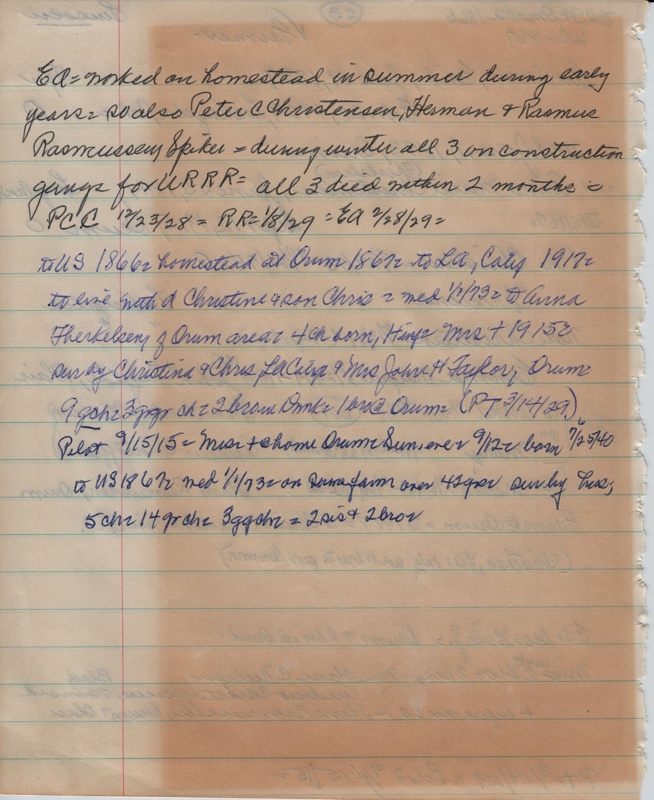 EA= worked on homestead in summer during early
years= so also Peter C Christensen, Herman & Rasmus
Rasmussen, Spiker = during winter all 3 on construction
gangs for U R R R= all 3 died within 2 months =
PCC 12/23/28 = RR= 1/8/29 = EA 2/28/29=
to US 1866= homestead at Orum 1867= to LA, Calif 1917=
to live with d Christine & son Chris = med 1/1/73= to Anna
Therkelsen, of Orum area= 4 ch born, Hing= Mrs + 1915=
sur by Christina & Chris, LA Calif & Mrs John H Taylor, Orum=
9 gch= 3 ggr ch= 2 bro in Dmk= 1 bro @ Orum= (PT 3/14/29)
Pilot 9/15/15= Mrs + @ home Orum= Sun, eve= 9/12= born 7/25/40
to US 1867= med 1/1/73= on same farm over 42 yrs= sur by hus,
5 ch= 14 gr ch= 3 ggch= = 2 sis & 2 bro=